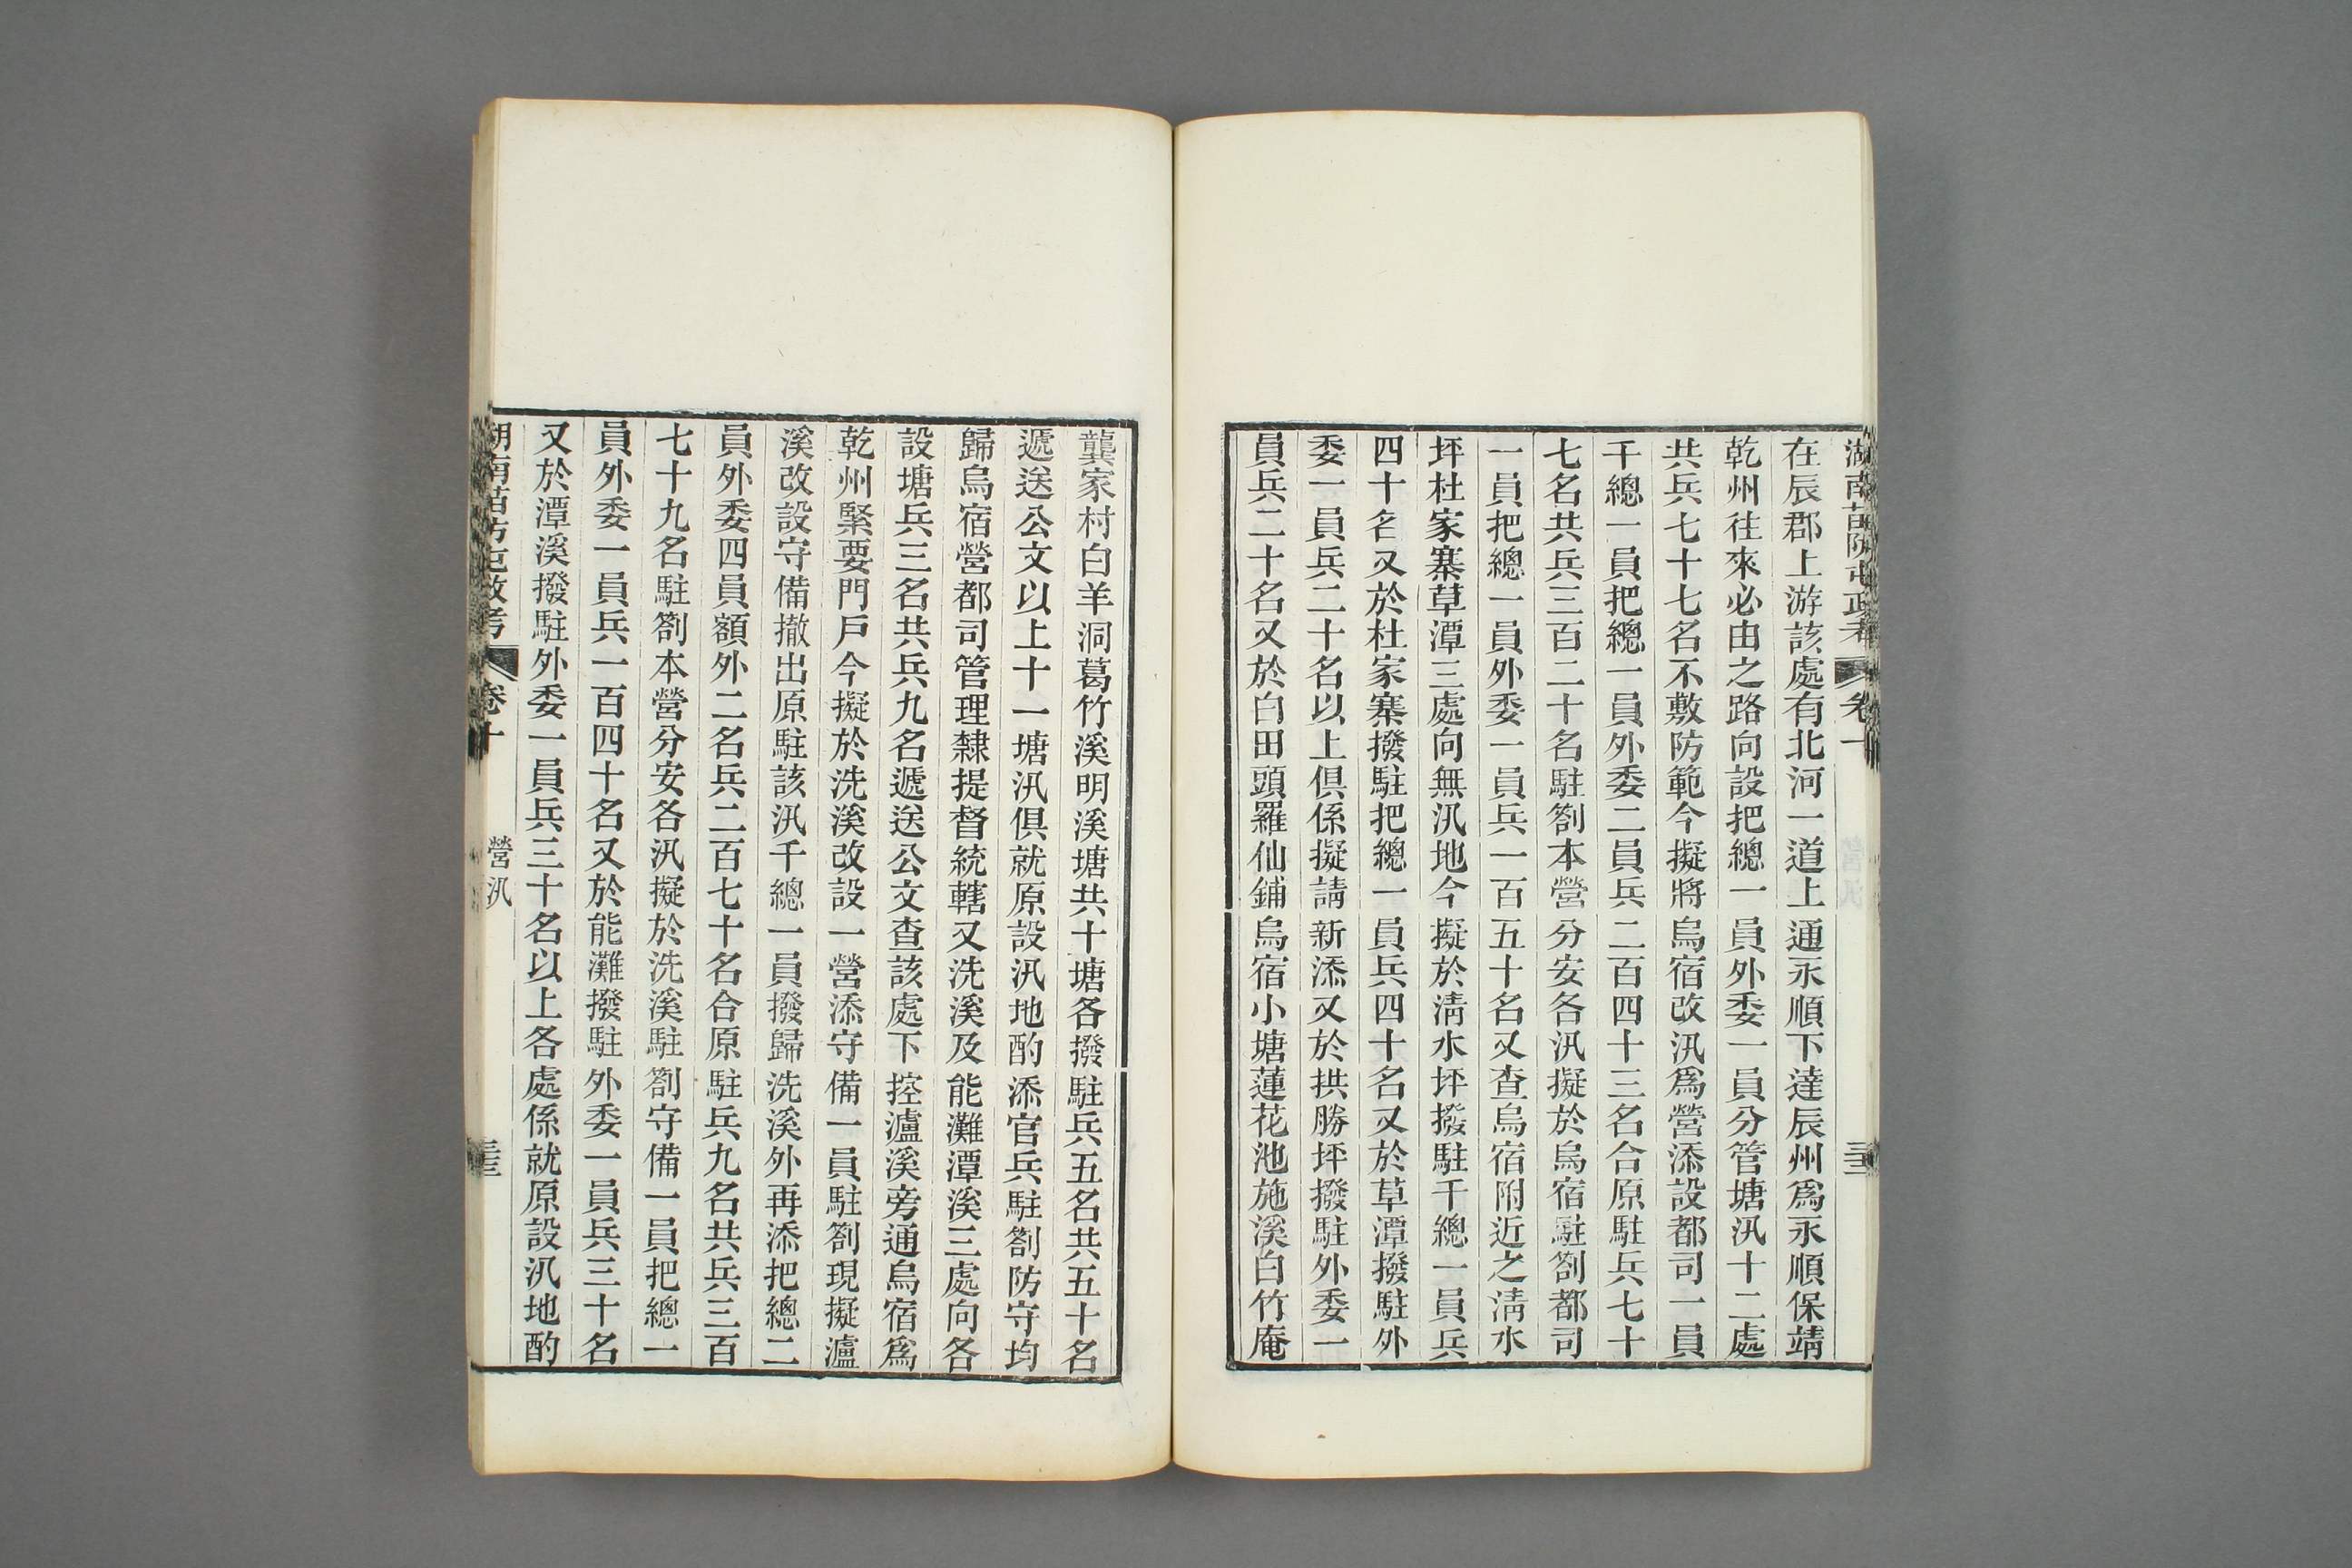 湖南苗防屯政考 卷十
在辰郡上游該處有北河一道上通永順下達辰州爲永順保靖
乾州往來必由之路向設把總一員外委一員分管塘汛十二處
共兵七十七名不敷防範今擬將烏宿改汛爲營添設都司一員
千總一員把總一員外委二員兵二百四十三名合原駐兵七十
七名共兵三百二十名駐劄本營分安各汛擬於烏宿駐劄都司
一員把總一員外委一員兵一百五十名又查烏宿附近之淸水
坪杜家寨草潭三處向無汛地今擬於淸水坪撥駐千總一員兵
四十名又於杜家寨撥駐把總一員兵四十名又於草潭撥駐外
委一員兵二十名以上俱係擬請新添又於拱勝坪撥駐外委一
員兵二十名又於白田頭羅仙鋪烏宿小塘蓮花池施溪白竹庵
龔家村白羊洞葛竹溪明溪塘共十塘各撥駐兵五名共五十名
遞送公文以上十一塘汛俱就原設汛地酌添官兵駐劄防守均
歸烏宿營都司管理隸提督統轄又洗溪及能灘潭溪三處向各
設塘兵三名共兵九名遞送公文查該處下控瀘溪旁通烏宿爲
乾州緊要門戶今擬於洗溪改設一營添守備一員駐劄現擬瀘
溪改設守備撤出原駐該汛千總一員撥歸洗溪外再添把總二
員外委四員額外二名兵二百七十名合原駐兵九名共兵三百
七十九名駐劄本營分安各汛擬於洗溪駐劄守備一員把總一
員外委一員兵一百四十名又於能灘撥駐外委一員兵三十名
又於潭溪撥駐外委一員兵三十名以上各處係就原設汛地酌
湖南苗防屯政考 卷十 營汛